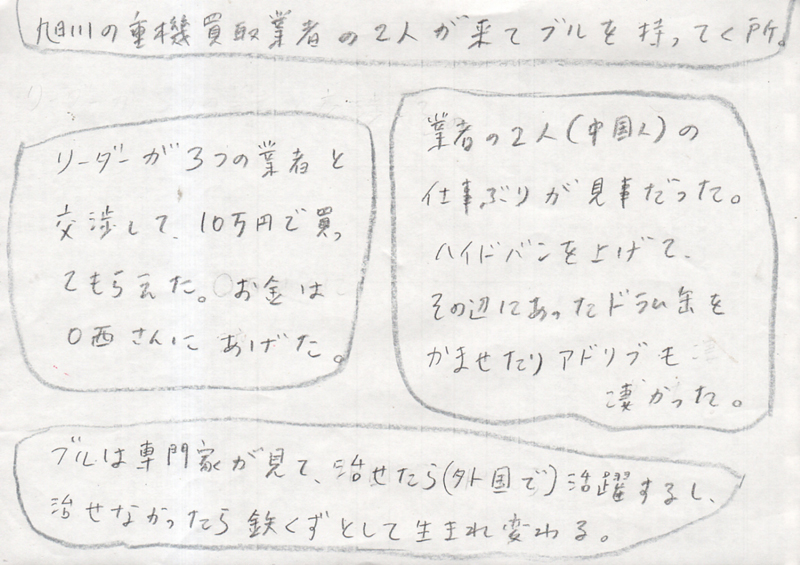 旭川の重機買取業者の2人が来てブルを持ってく所。
リーダーが3つの業者と
交渉して、10万円で買っ
てもらえた。お金は
〇西さんにあげた。
業者の2人(中国人)の
仕事ぶりが見事だった。
ハイドバンを上げて、
その辺にあったドラム缶を
かませたりアドリブも
凄かった。
ブルは専門家が見て、治せたら(外国で)活躍するし、
治せなかったら鉄くずとして生まれ変わる。